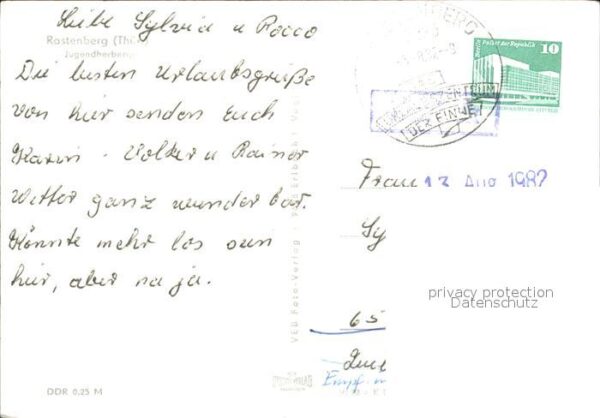 Liebe Sylvia u Rocco
Rastenberg (Thür)
Jugendherberge
Die besten Urlaubsgrüße
von hier senden Euch
Karin - Volker u Rainer
Wetter ganz wunderbar.
Könnte mehr los sein
hier, aber na ja.
DDR 0,25 M
VEB Foto-Verlag
Palast der Republik
10
DER FINNE
Frau
13. AUG 1982
Sy
privacy protection
Datenschutz
65